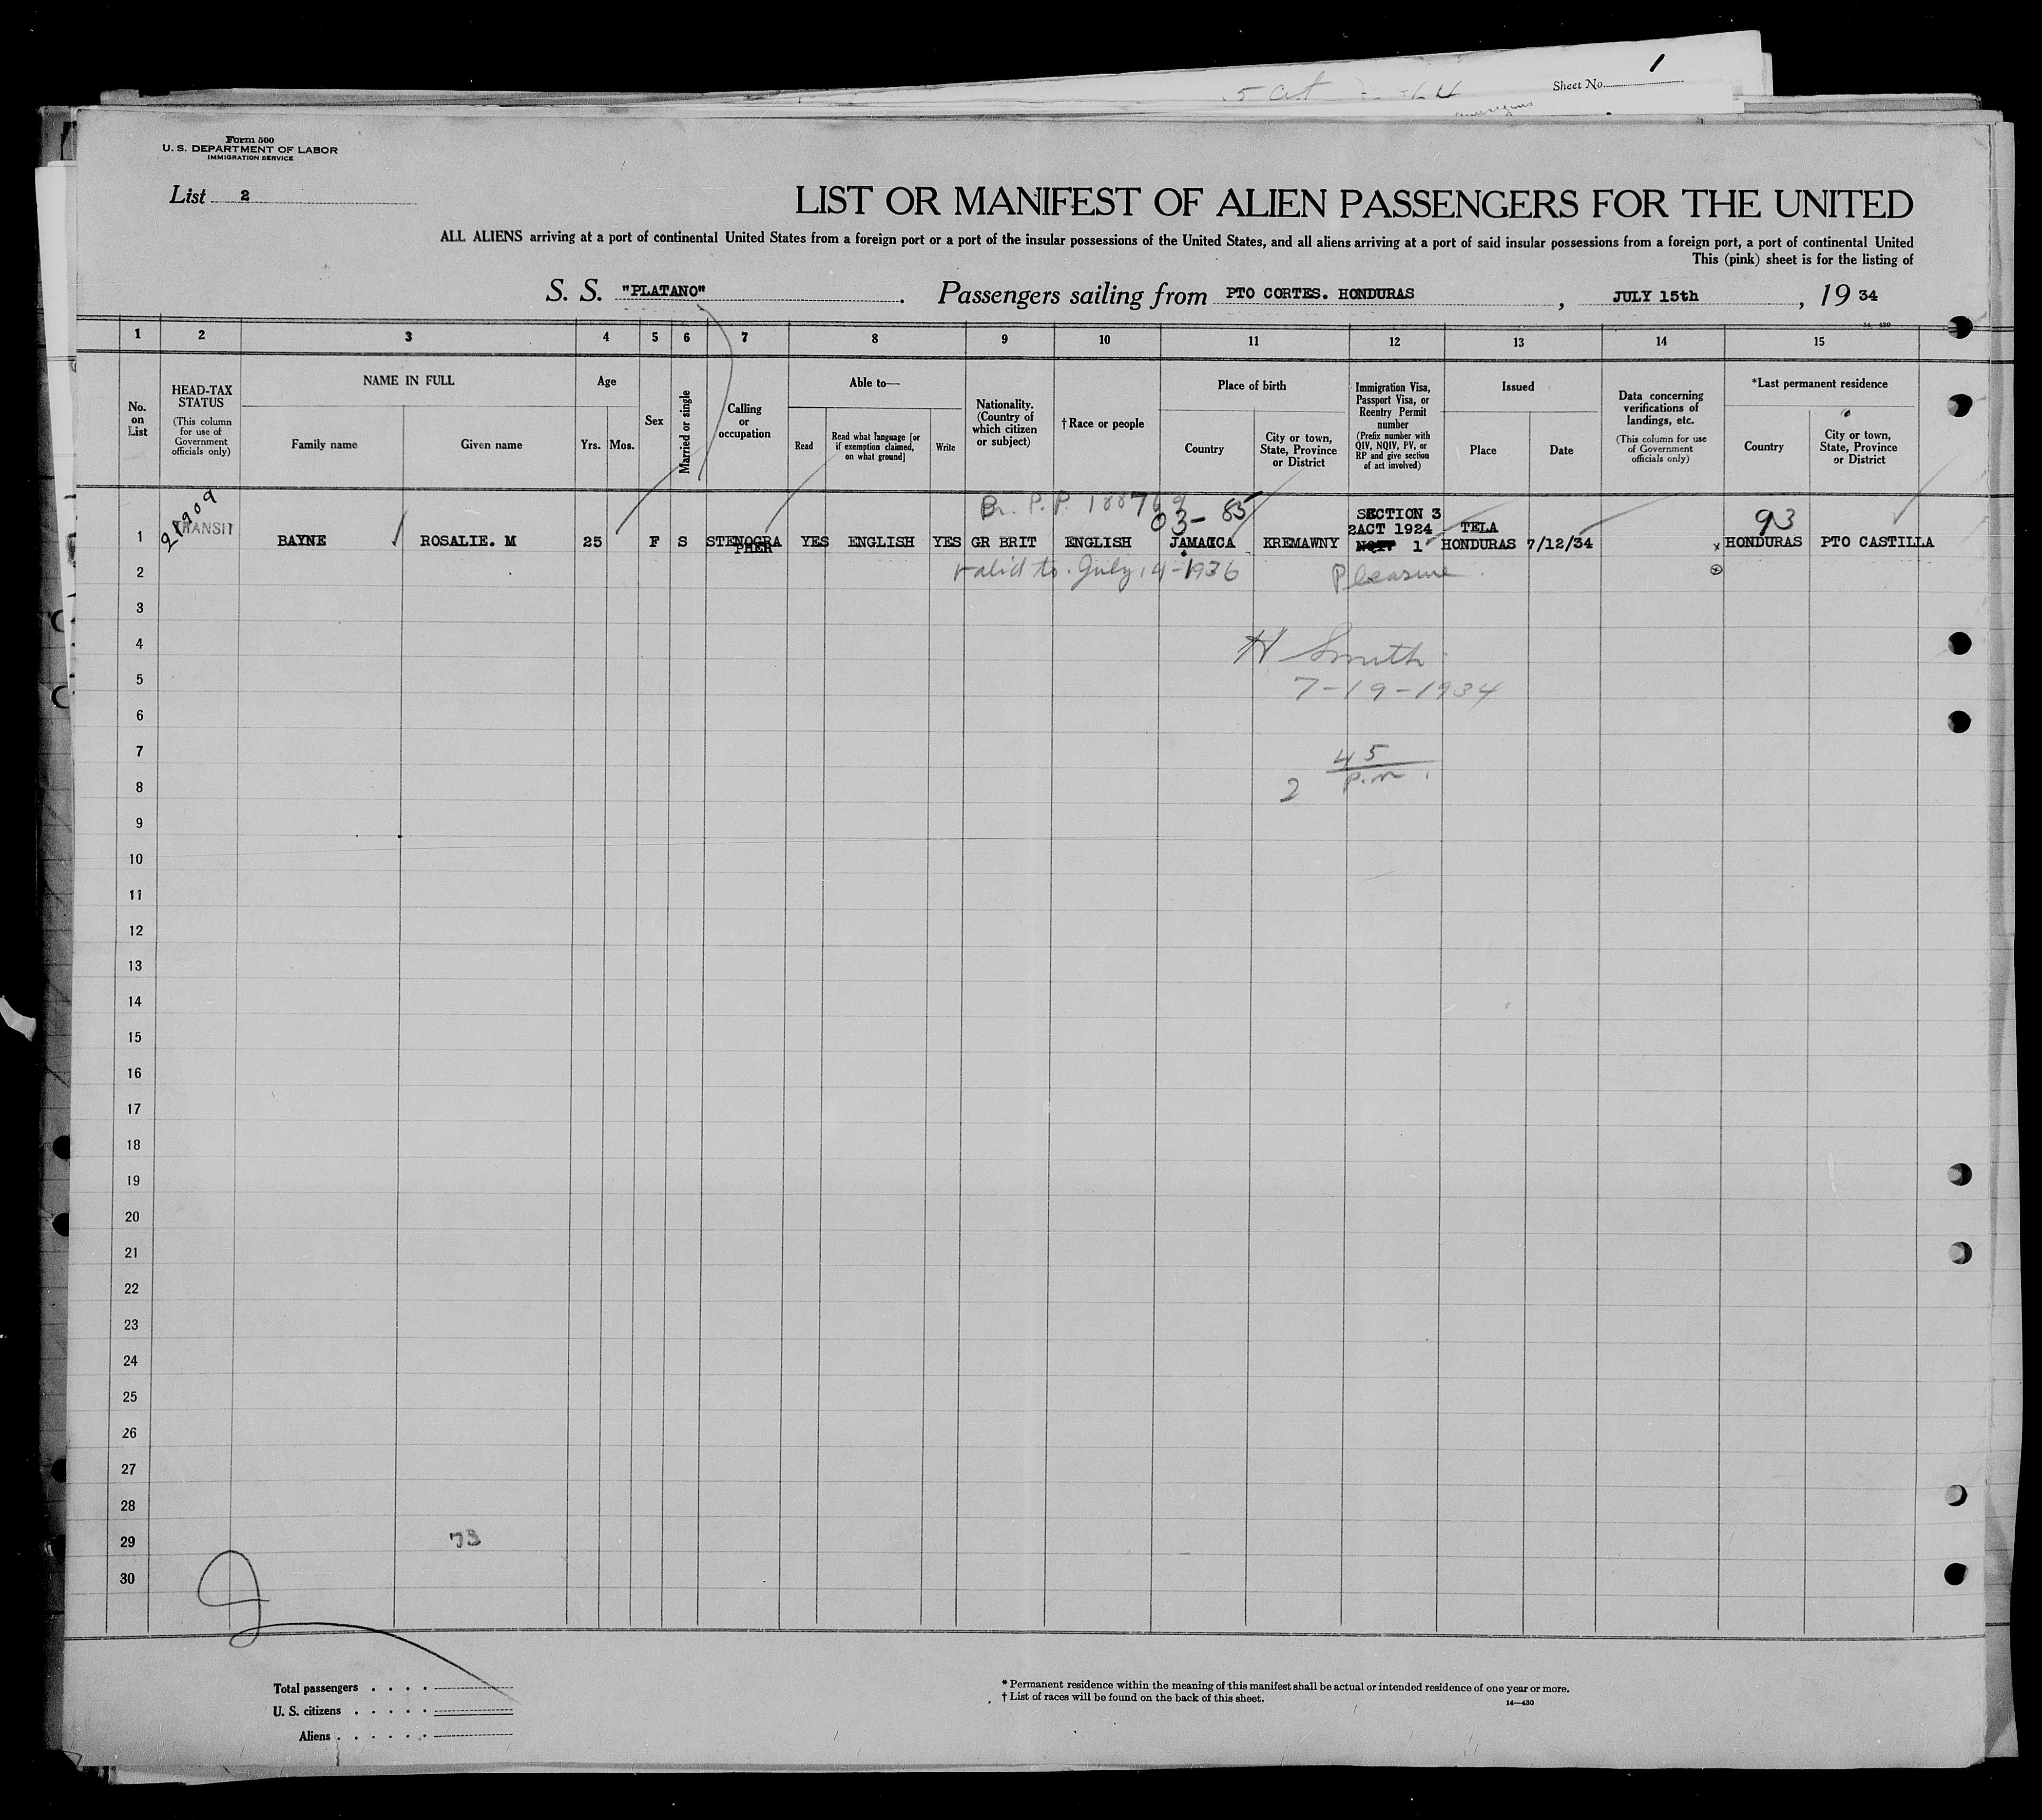 Sheet No. 1
Form 500
U. S. DEPARTMENT OF LABOR
IMMIGRATION SERVICE
List 2
LIST OR MANIFEST OF ALIEN PASSENGERS FOR THE UNITED
ALL ALIENS arriving at a port of continental United States from a foreign port or a port of the insular possessions of the United States, and all aliens arriving at a port of said insular possessions from a foreign port, a port of continental United
This (pink) sheet is for the listing of
S. S. "PLATANO". Passengers sailing from PTO CORTES. HONDURAS, JULY 15th, 19 34
14—430
1 2 3 4 5 6 7 8 9 10 11 12 13 14 15
No. on List
HEAD-TAX STATUS
(This column for use of Government officials only)
NAME IN FULL
Family name
Given name
Age
Yrs. Mos.
Sex
Married or single
Calling or occupation
Able to—
Read
Read what language [or if exemption claimed, on what ground]
Write
Nationality. (Country of which citizen or subject)
†Race or people
Place of birth
Country
City or town, State, Province or District
Immigration Visa, Passport Visa, or Reentry Permit number
(Prefix number with QIV, NQIV, PV, or RP and give section of act involved)
Issued
Place
Date
Data concerning verifications of landings, etc.
(This column for use of Government officials only)
*Last permanent residence
Country
City or town, State, Province or District
21909
TRANSIT
Br. P.P. 188769
03- 85
SECTION 3
2ACT 1924
TELA
93
1 BAYNE ROSALIE. M 25 F S STENOGRA YES ENGLISH YES GR BRIT ENGLISH JAMAICA KREMAWNY 1 HONDURAS 7/12/34 x HONDURAS PTO CASTILLA
PHER
2 valid to. July 14-1936 Pleasure
3
4 H Smith
5 7-19-1934
6
7 45
8 2 P.M.
9
10
11
12
13
14
15
16
17
18
19
20
21
22
23
24
25
26
27
28
29 73
30
Total passengers . . . .
U. S. citizens . . . . .
Aliens . . . . . .
* Permanent residence within the meaning of this manifest shall be actual or intended residence of one year or more.
† List of races will be found on the back of this sheet.
14—430